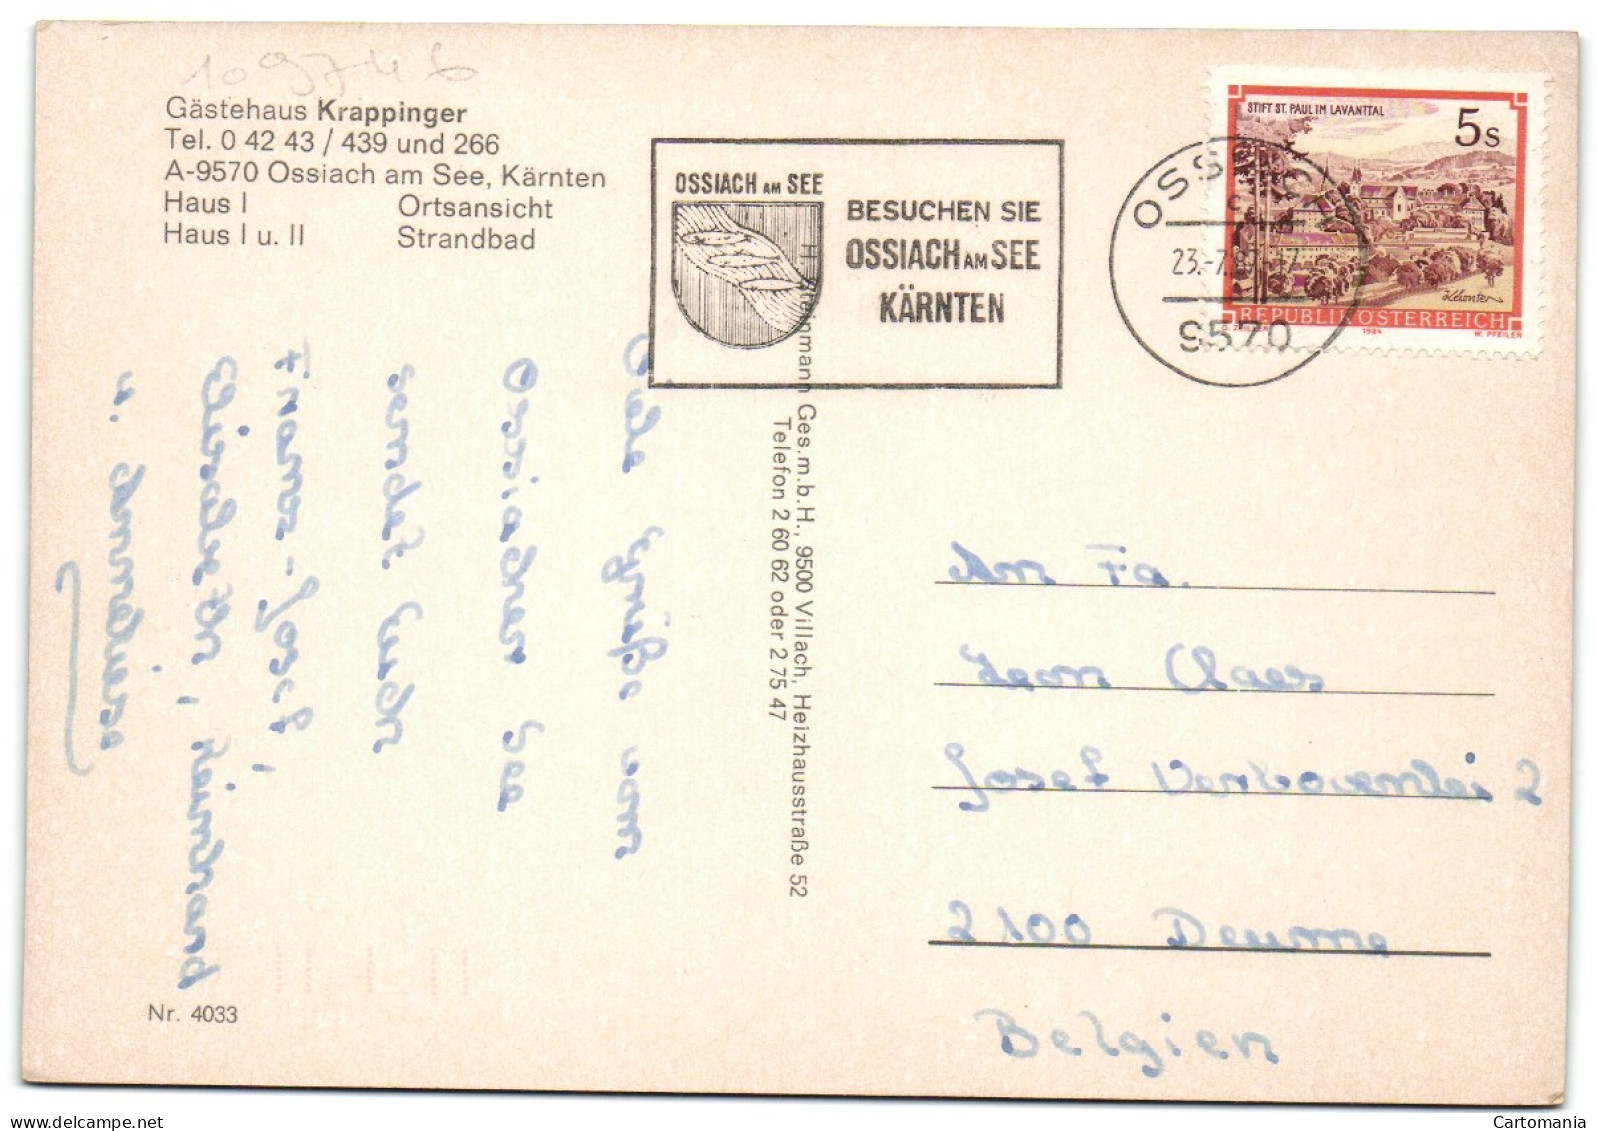 109746
Gästehaus Krappinger
Tel. 0 42 43 / 439 und 266
A-9570 Ossiach am See, Kärnten
Haus I Ortsansicht
Haus I u. II Strandbad
OSSIACH AM SEE
BESUCHEN SIE
OSSIACH AM SEE
KÄRNTEN
OSSIACH
23.-7.87-17
9570
STIFT ST. PAUL IM LAVANTTAL
5s
REPUBLIK ÖSTERREICH
O. ZEILLER 1984 W. PFEILER
Viele Grüße vom
Ossiacher See
sendet Euch
Franz-Josef,
u. Anneliese
Ges.m.b.H., 9500 Villach, Heizhausstraße 52
Telefon 2 60 62 oder 2 75 47
An Fa.
Leon Claes
Josef 2
2100 Deurne
Belgien
Nr. 4033
Cartomania